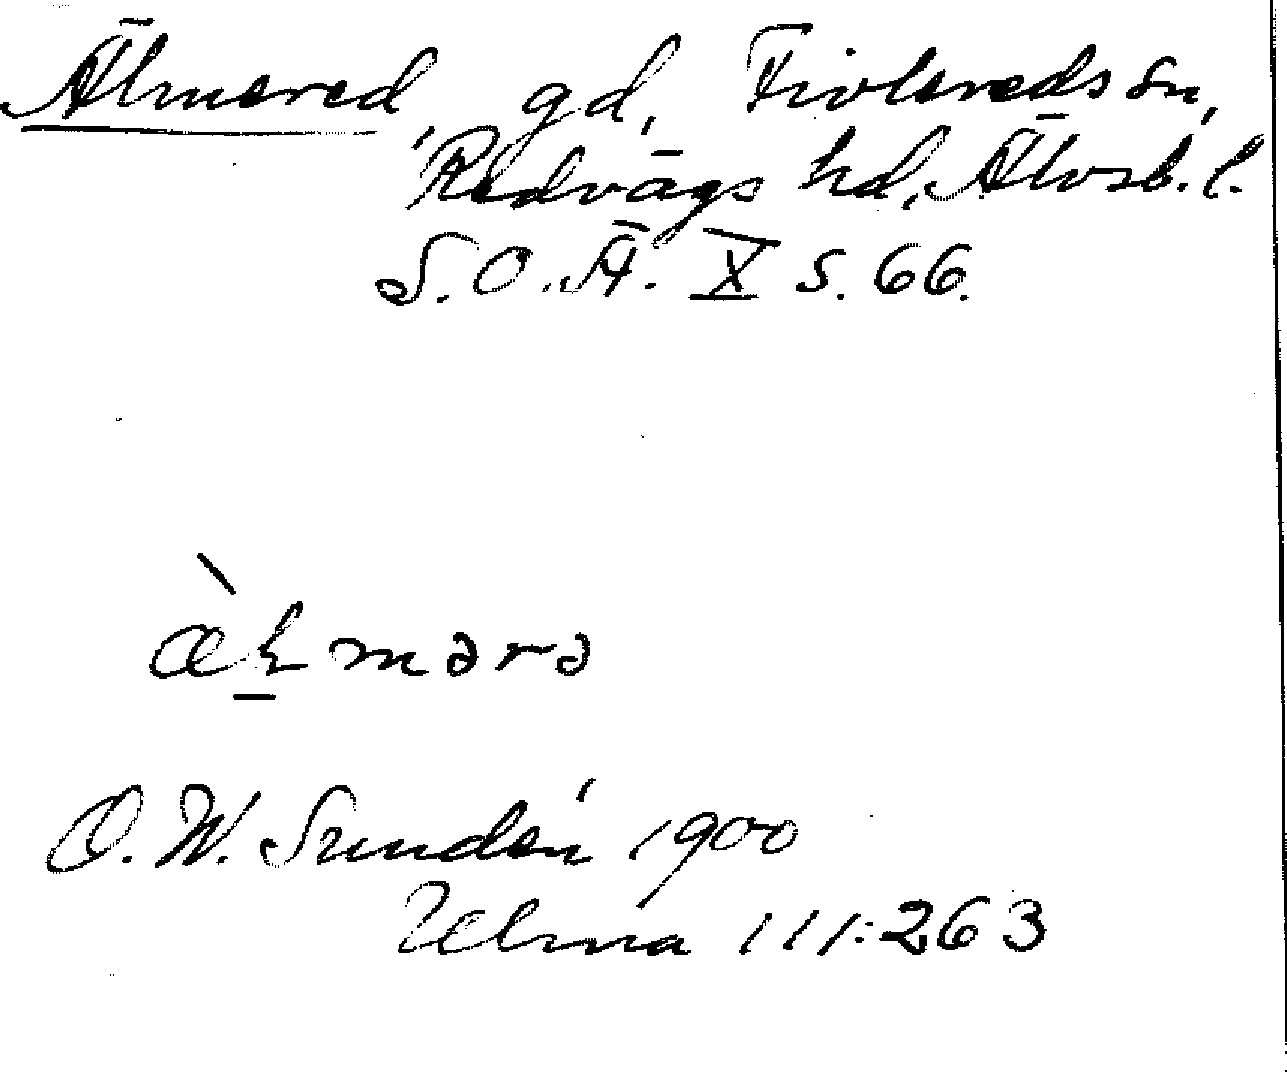 Älmered, gd, Fivlereds sn,
Redvägs hd, Älvsb. l.
S.O.Ä. X s. 66.
æ̀ɬmərə
O. W. Sundén 1900
Ulma 111:263